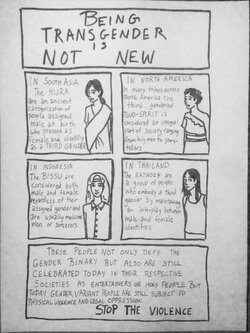 BEING
TRANSGENDER
IS
NOT NEW
IN SOUTH ASIA
THE HIJRA
are an ancient
categorization of
people assigned
male at birth
who present as
female and identify
as a THIRD GENDER
IN NORTH AMERICA
in many tribes across
North America the
third gendered
TWO-SPIRIT is
considered an
part of society ranging
from holy men to story-
tellers
IN INDONESIA
The BISSU are
considered both
male and female
regardless of their
assigned gender and
are usually medicine
men or sorcerers
IN THAILAND
The KATHOEY are
a group of people
who embody a third
gender by maintaining
an interplay between
male and female
identities
THESE PEOPLE NOT ONLY DEFY THE
GENDER BINARY BUT ALSO ARE STILL
CELEBRATED TODAY IN THEIR RESPECTIVE
SOCIETIES AS ENTERTAINERS OR HOLY PEOPLE BUT
TODAY GENDER VARIANT PEOPLE ARE STILL SUBJECT TO
PHYSICAL VIOLENCE AND LEGAL OPPRESSION
STOP THE VIOLENCE